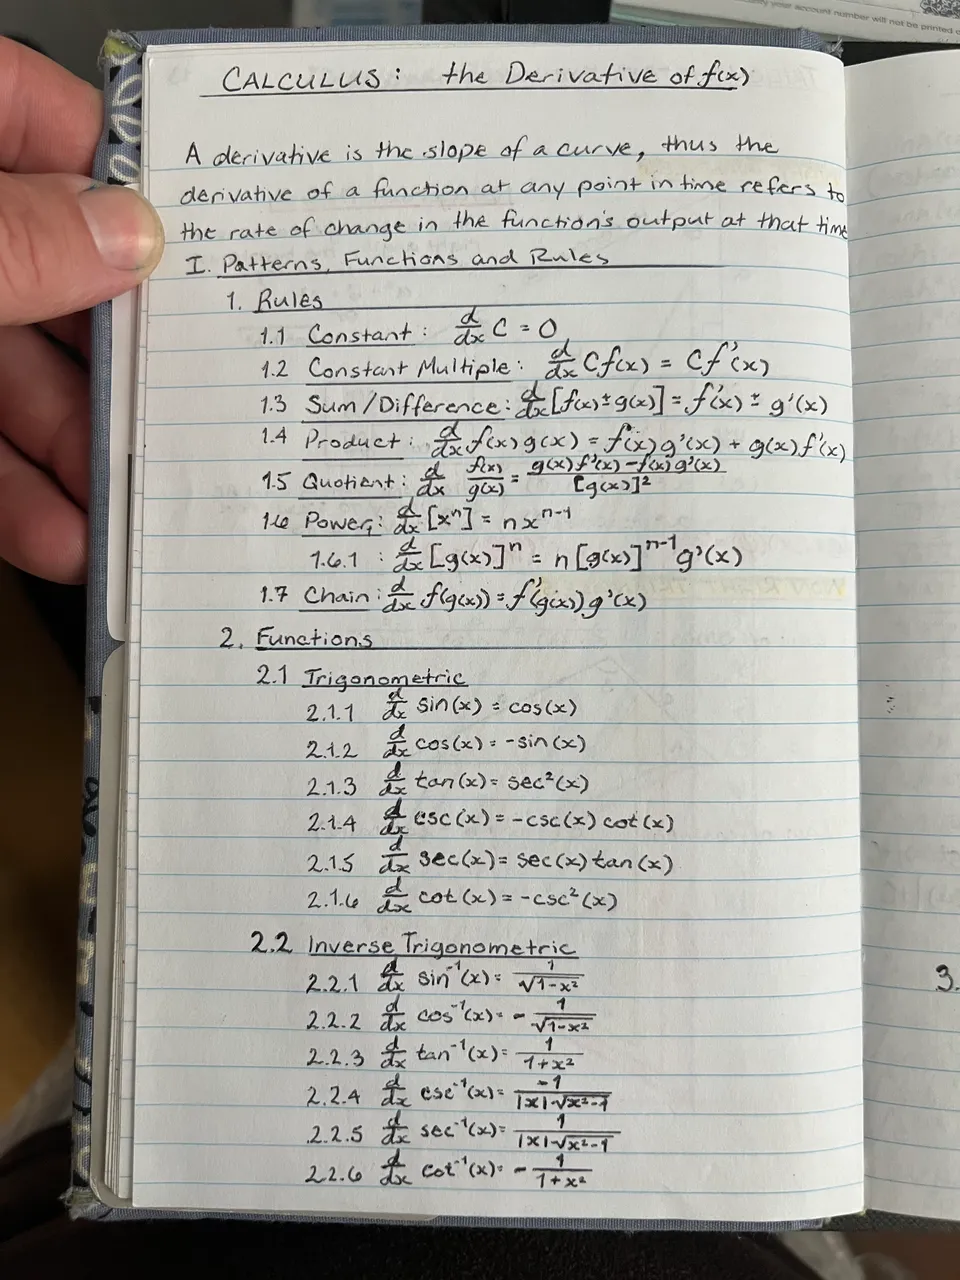 ity your account number will not be printed
CALCULUS: the Derivative of f(x)
A derivative is the slope of a curve, thus the
derivative of a function at any point in time refers to
the rate of change in the function's output at that time
I. Patterns, Functions and Rules
1. Rules
1.1 Constant: d/dx C = 0
1.2 Constant Multiple: d/dx Cf(x) = Cf'(x)
1.3 Sum/Difference: d/dx [f(x) ± g(x)] = f'(x) ± g'(x)
1.4 Product: d/dx f(x)g(x) = f(x)g'(x) + g(x)f'(x)
1.5 Quotient: d/dx f(x)/g(x) = g(x)f'(x) - f(x)g'(x) / [g(x)]²
1.6 Power: d/dx [xⁿ] = nxⁿ⁻¹
1.6.1 : d/dx [g(x)]ⁿ = n[g(x)]ⁿ⁻¹g'(x)
1.7 Chain: d/dx f(g(x)) = f'(g(x))g'(x)
2. Functions
2.1 Trigonometric
2.1.1 d/dx sin(x) = cos(x)
2.1.2 d/dx cos(x) = -sin(x)
2.1.3 d/dx tan(x) = sec²(x)
2.1.4 d/dx csc(x) = -csc(x) cot(x)
2.1.5 d/dx sec(x) = sec(x) tan(x)
2.1.6 d/dx cot(x) = -csc²(x)
2.2 Inverse Trigonometric
2.2.1 d/dx sin⁻¹(x) = 1/√1-x²
2.2.2 d/dx cos⁻¹(x) = - 1/√1-x²
2.2.3 d/dx tan⁻¹(x) = 1/1+x²
2.2.4 d/dx csc⁻¹(x) = -1/|x|√x²-1
2.2.5 d/dx sec⁻¹(x) = 1/|x|√x²-1
2.2.6 d/dx cot⁻¹(x) = - 1/1+x²
3.